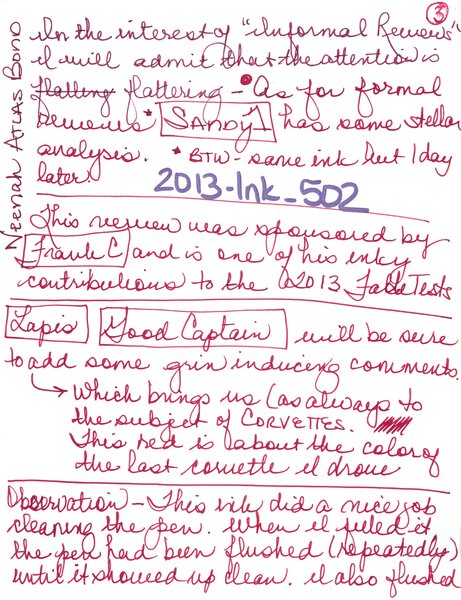 ③
Neenah Atlas Bond
In the interest of "Informal Reviews"
I will admit that the attention is
flattering - As for formal
Reviews * SANDY1 has some stellar
analysis. * BTW - same ink but 1 day
later.
2013-Ink_502
This review was sponsored by
Frank C and is one of his inky
contributions to the 2013 Fade Tests
Lapis Good Captain will be sure
to add some grin inducing comments.
→ Which brings us (as always to
the subject of CORVETTES.
This red is about the color of
the last corvette I drove
Observation - This ink did a nice job
cleaning the pen. When I filled it
the pen had been flushed (repeatedly)
until it showed up clean. I also flushed